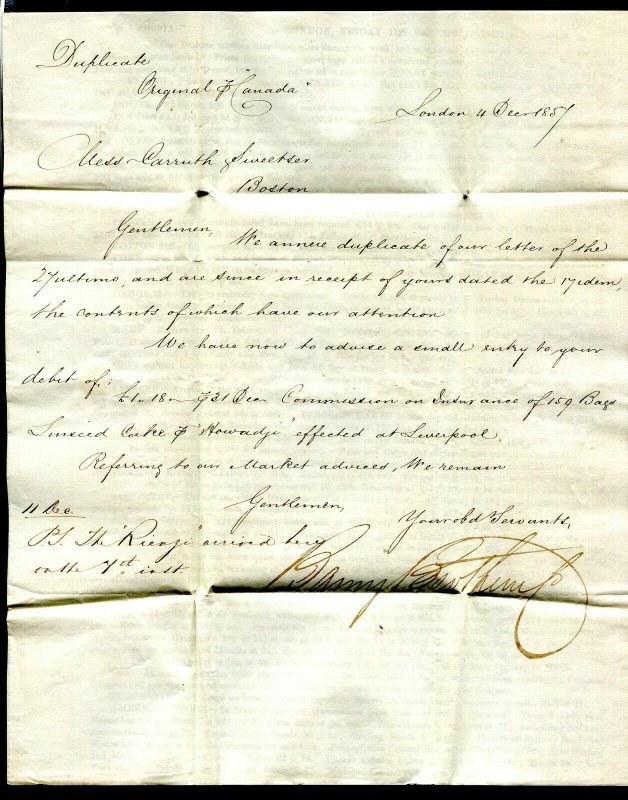 Duplicate
Original ⅌ "Canada"
London 4 Decr 1857
Mess Carruth & Sweetser
Boston
Gentlemen,
We annexe duplicate of our letter of the
27 ultimo, and are since in receipt of yours dated the 17 idem,
the contents of which have our attention
We have now to advise a small entry to your
debit of,:
£1. 18 - ⅌ 31 Dec Commission on Insurance of 159 Bags
Linseed Cake ⅌ "Howadji" effected at Liverpool.
Referring to our Market advices, We remain
Gentlemen,
Your obd Servants,
11 Dec
P.S. The "Rienzi" arrived here
on the 7th inst.
Baring Brothers & Co